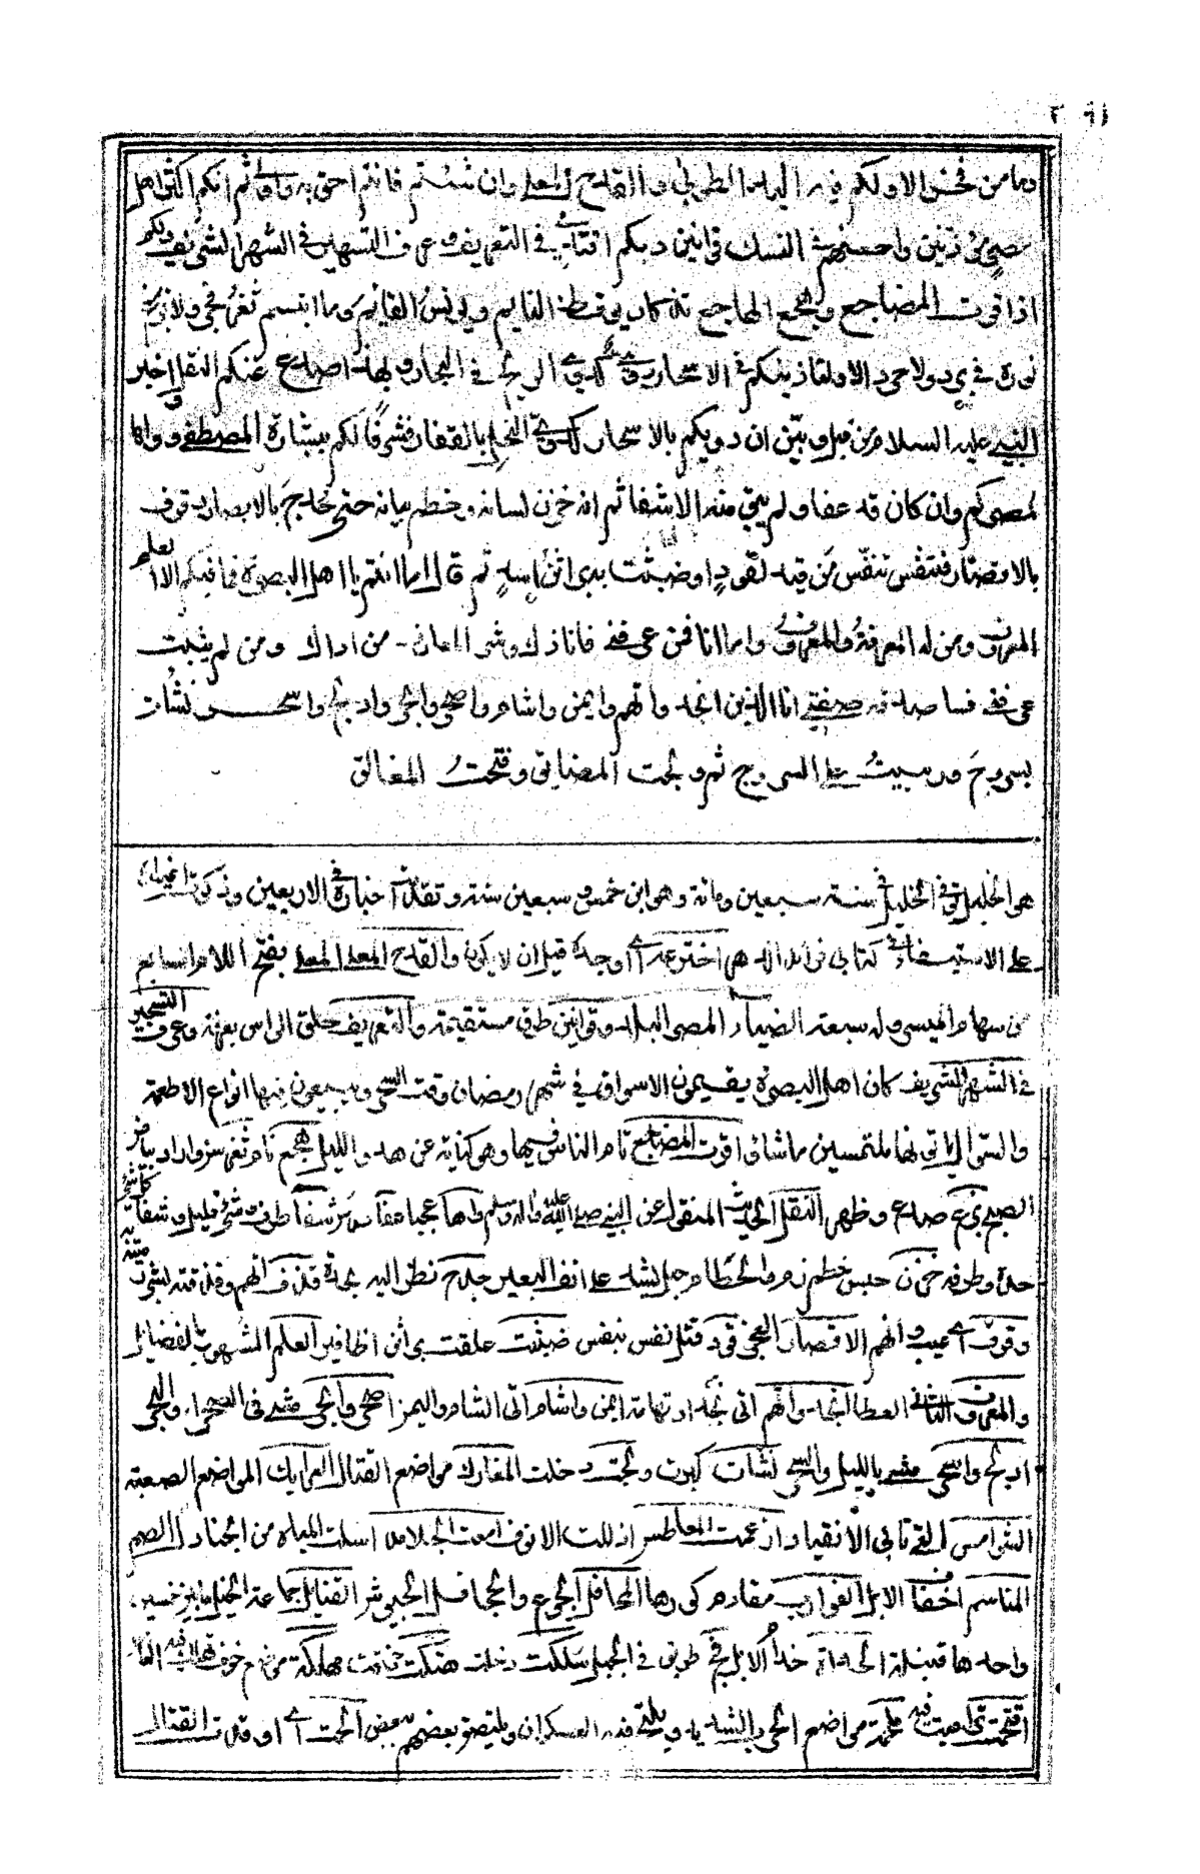 ٢٩١
وما من فخر الا ولكم فيه اليد الطولى والقدح المعلى وان شئتم فانتم احق به واولى ثم انكم اكثر اهل
مصر مؤذنين واحسنهم في النسك قوانين وبكم اقتدى في التعريف وعرف التسحير في الشهر الشريف ولكم
اذا قرت المضاجع وهجع الهاجع تذكار يوقظ النايم ويونس القايم وما ابتسم ثغر فجر ولا بزغ
نوره في برد ولا حر الا ولتاذينكم في الاسحار دوي كدوي الريح في البحار وبهذا صدع عنكم النقل واخبر
النبي عليه السلام من قبل وبين ان دويكم بالاسحار كدوي النحل بالقفار فشرفا لكم ببشارة المصطفى وواها
لمصركم وان كان قد عفا ولم يبق منه الا شفا ثم انه خزن لسانه وخطم بيانه حتى حدج بالابصار وقرف
بالاقصار فتنفس تنفس من قيد لقود او ضبثت به براثن اسد ثم قال اما انتم يا اهل البصرة فما فيكم الا العلم
المعروف ومن له المعرفة والمعروف واما انا فمن عرفني فانا ذاك وشر المعارف من اذاك ومن لم يثبت
عرفتي فساصدقه صفتي انا الذي انجد واتهم وايمن واشام واصحر وابحر وادلج واسحر نشات
بسروج وربيت على السروج ثم ولجت المضايق وفتحت المغالق
هو الخليل توفي الخليل في سنة سبعين ومائة وهو ابن خمس وسبعين سنة وتقدمت اخباره في الاربعين وذكرت
على الاستيفاء في كتابي اخترعه اي اوجده قبل ان لا يكون والقدح المعلى المعلى بفتح اللام سابع
من سهام الميسر وله سبعة انصباء المصر البلد وقوانين طرق مستقيمة والتعريف خلق الراس بعرفة وعرف التسحير
في الشهر الشريف كان اهل البصرة يقيمون الاسواق في شهر رمضان وقت السحر ويبيعون فيها انواع الاطعمة
ما شاؤا قرت المضاجع نام الناس فيها وهو كناية عن هدو الليل هجع نام ثغر سن واراد بياض
الصبح بزغ صدع وظهر النقل الحديث المنقول عن النبي صلى الله عليه واله وسلم واها عجبا عفا درس شفا طرف وشيء قليل وشفا كل شيء
حده وطرفه خزن حبس خطم زم والخطام حبل يشد على انف البعير حدج نظر اليه بحدة قذف اتهم وقذفته بشيء
وقرف اي عيب واتهم الاقصار العجز قود قتل نفس بنفس ضبثت علقت براثن اظافير العلم المشهور بالفضايل
والمعروف الثاني العطا انجد واتهم اتى نجد او تهامة ايمن واشام اتى الشام واليمن اصحر وابحر مشى في الصحراء والبحر
ادلج واسحر مشى بالليل والسحر نشات كبرت ولجت دخلت المعارك مواضع القتال العرايك المواضع الصعبة
الشوامس التي تابى الانقياد ارغمت المعاطس اذللت الانوف امعت الجلامد اسلت المياه من الجنادل الصم
المناسم اخفاف الابل الغوارب مقادم المحافل الجموع والجحافل الجيوش القنابل جماعة الخيل
واحدها قنبلة الحداة حداة الابل فج طريق في الجبل سلكت دخلت هتكت مهلكة موضع خوف
اقتحمت دخلت ملحمة مواضع الحرب الشديدة ويلتقي فيه العسكران ويلتصق بعضهم ببعض الحمت اي اوقدت القتال